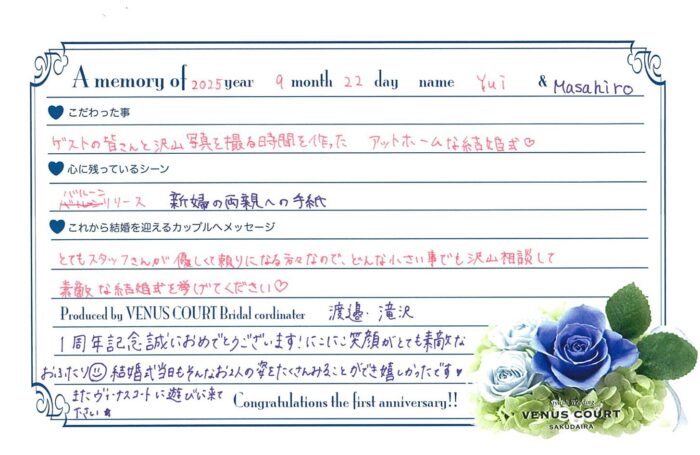 A memory of 2025 year 9 month 22 day name Yui & Masahiro
こだわった事
ゲストの皆さんと沢山写真を撮る時間を作った アットホームな結婚式♡
心に残っているシーン
バルーン
リリース 新婦の両親への手紙
これから結婚を迎えるカップルへメッセージ
とてもスタッフさんが優しくて頼りになる方々なので、どんな小さい事でも沢山相談して
素敵な結婚式を挙げてください♡
Produced by VENUS COURT Bridal cordinater 渡邉・滝沢
1周年記念誠におめでとうございます!にこにこ笑顔がとても素敵な
おふたり☺結婚式当日もそんなお2人の姿をたくさんみることができ嬉しかったです♥
またヴィーナスコートに遊びに来て
ださい★ Congratulations the first anniversary!!
VENUS COURT
SAKUDAIRA